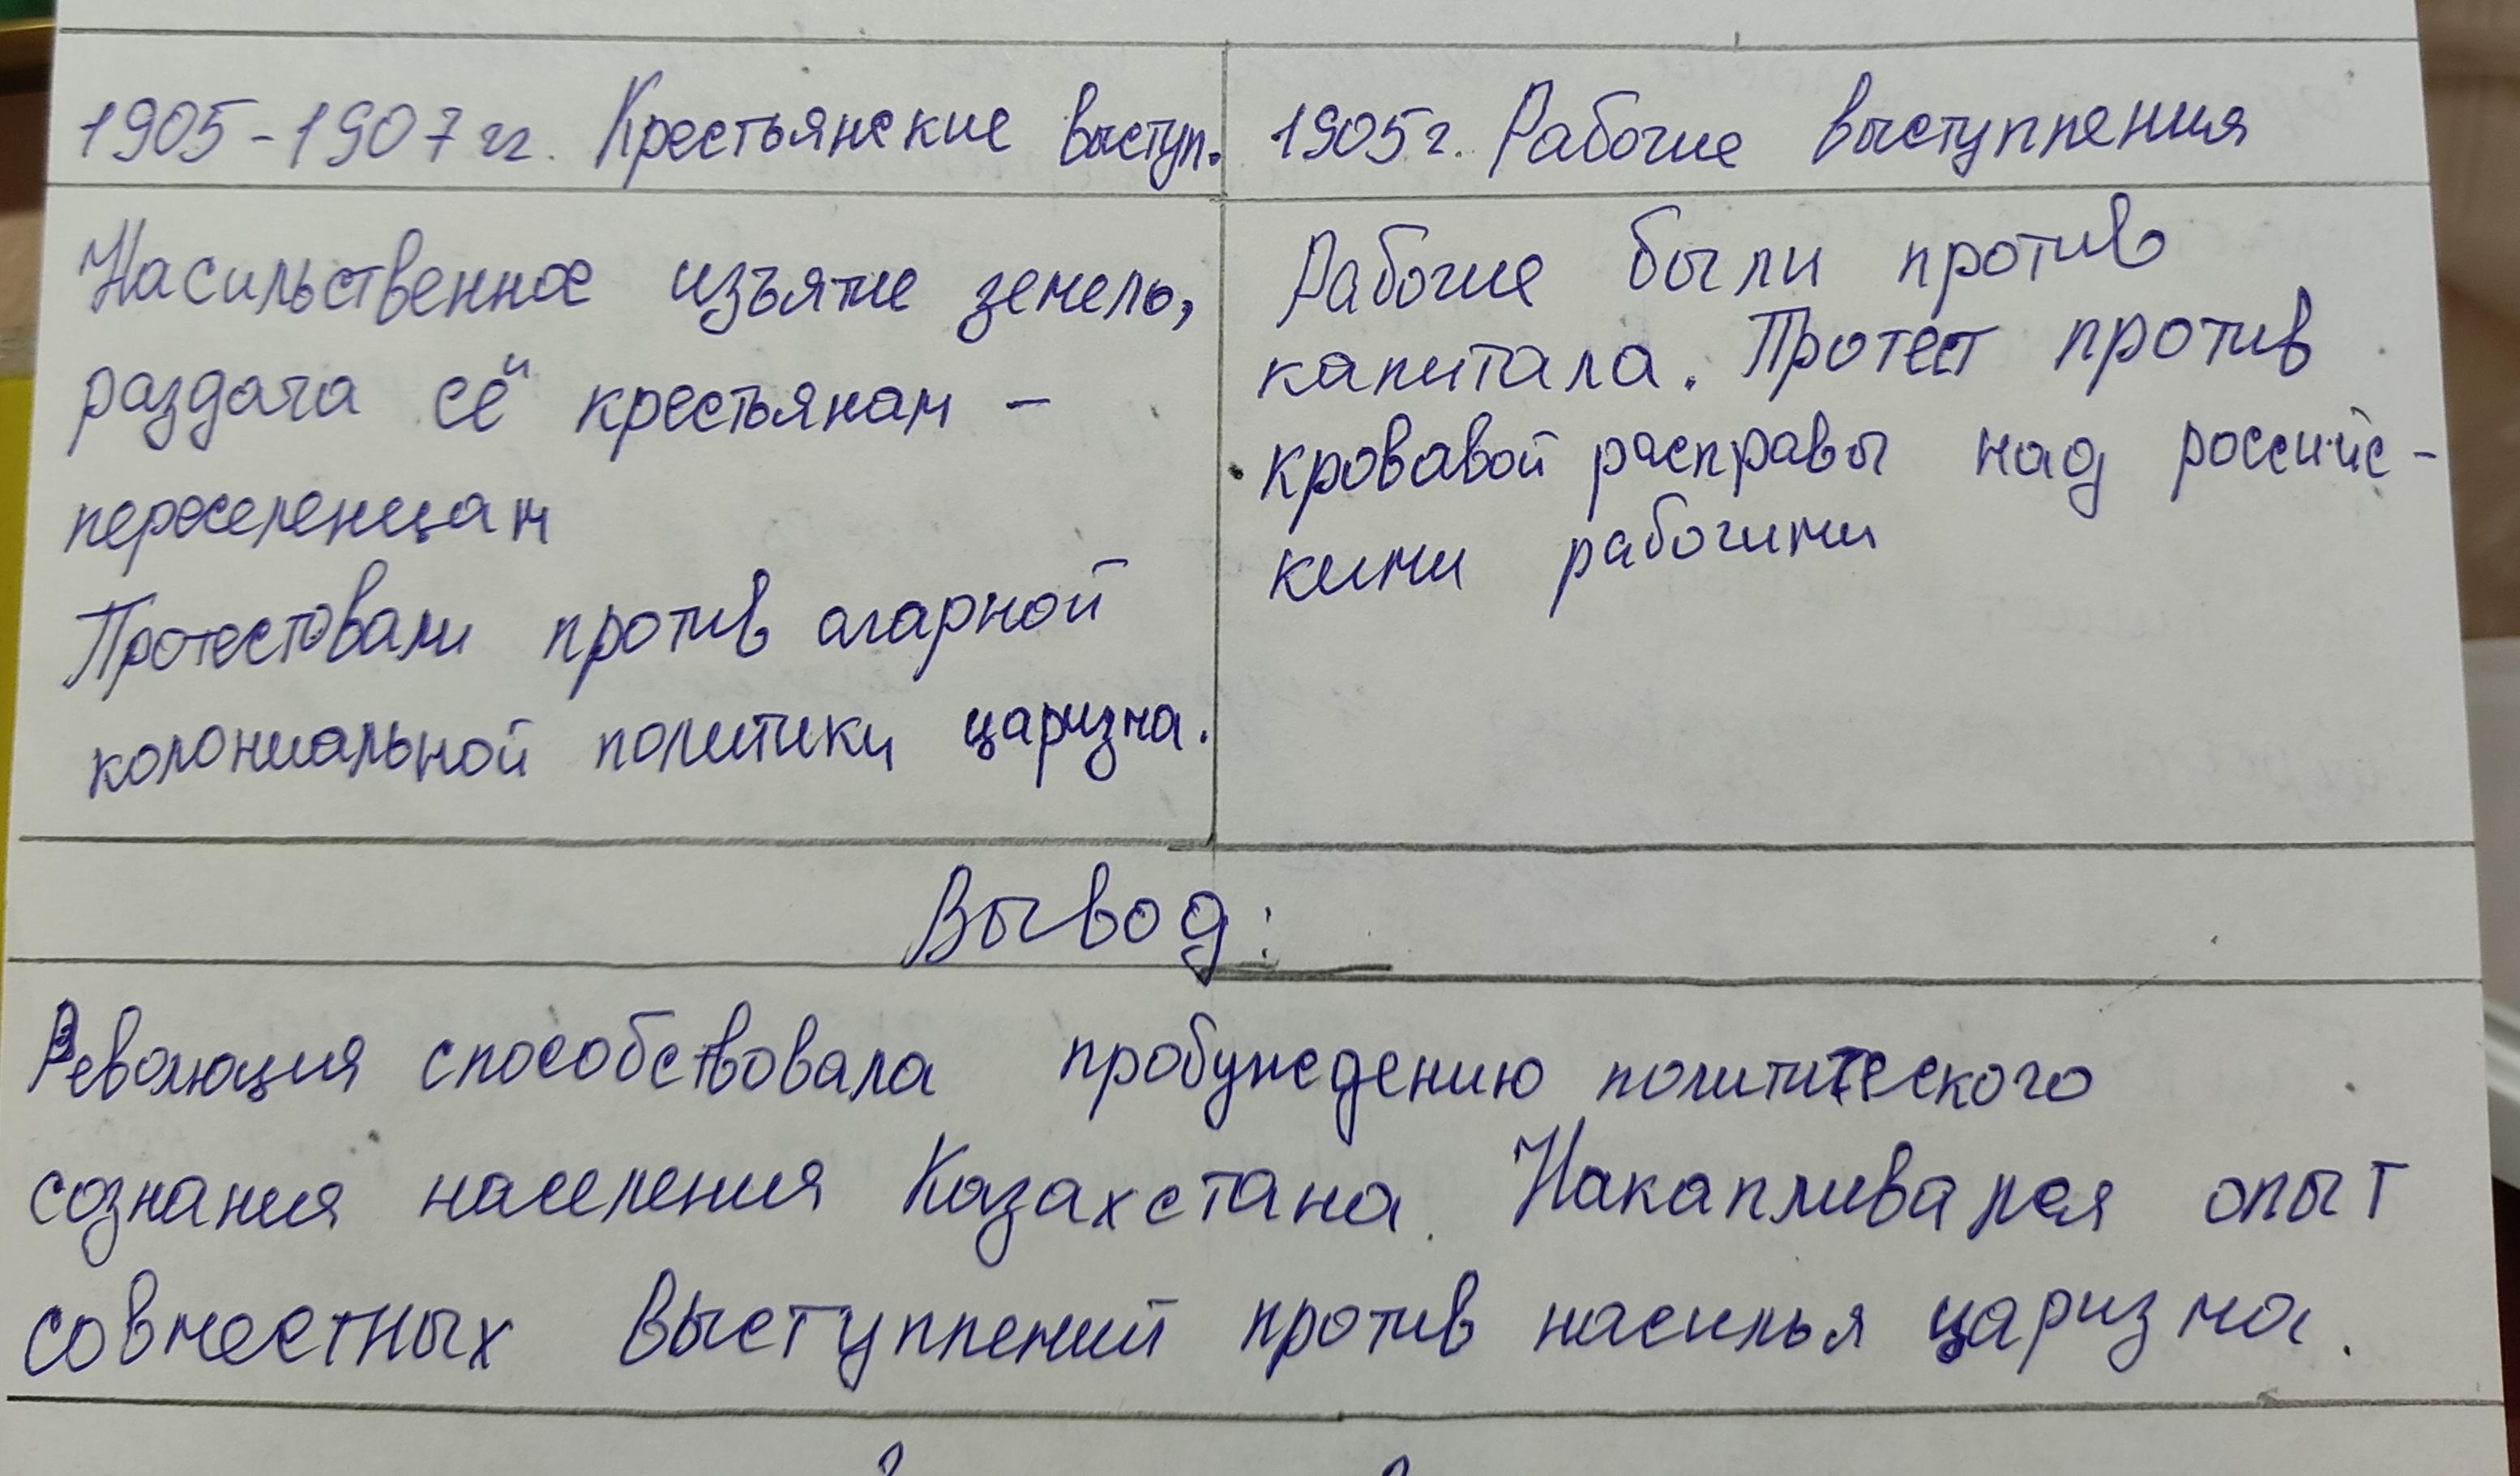 1905-1907 гг. Крестьянские выступ.
Насильственное изъятие земель,
раздача её крестьянам -
переселенцам
Протестовали против агарной
колониальной политики царизма.
1905 г. Рабочие выступления
Рабочие были против
капитала. Протест против
кровавой расправы над российс-
кими рабочими
Вывод:
Революция способствовала пробуждению политического
сознания населения Казахстана. Накапливался опыт
совместных выступлений против насилья царизма.